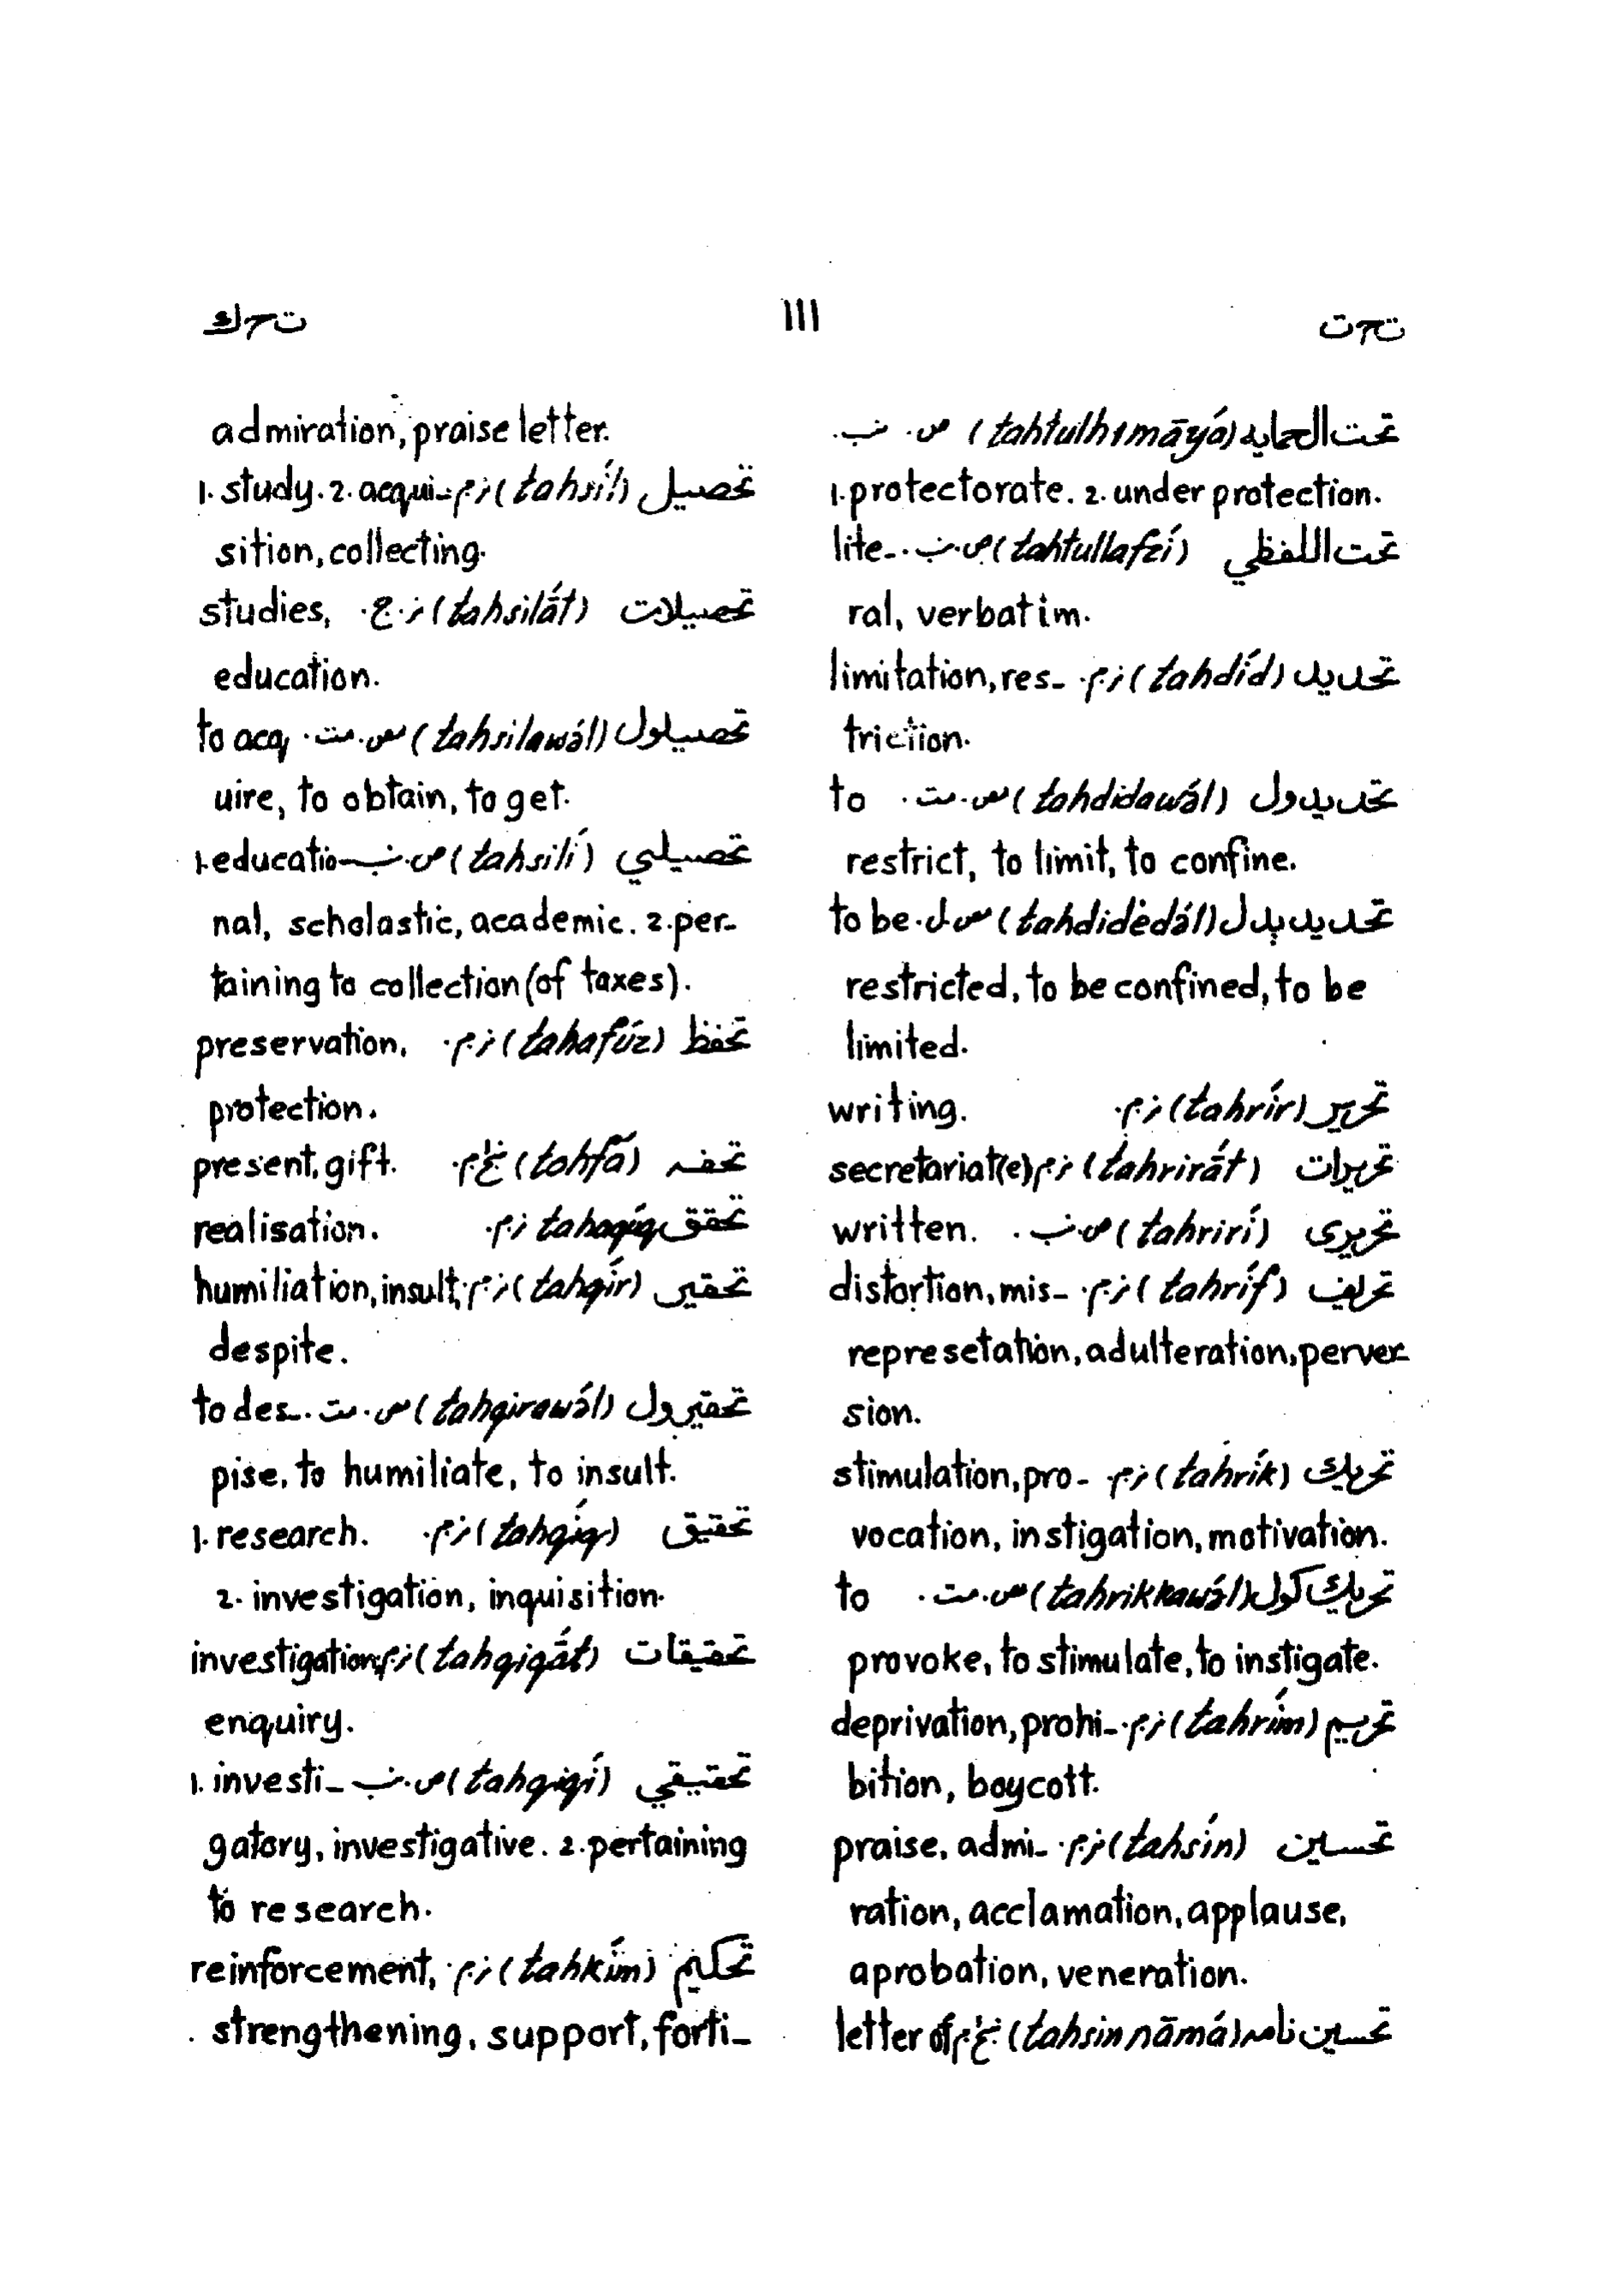 تحت 111 تحك
تحت الحمایه (tahtulhimāyá) ص. نب.
1. protectorate. 2. under protection.
تحت اللفظي (tahtullafzí) ص. نب. lite-
ral, verbatim.
تحدید (tahdíd) ز. م. limitation, res-
triction.
تحدیدول (tahdidawə́l) مص. مت. to
restrict, to limit, to confine.
تحدیدېدل (tahdidedə́l) مص. ل. to be
restricted, to be confined, to be
limited.
تحریر (tahrír) ز. م. writing.
تحریرات (tahrirā́t) ز. م. secretariat(e)
تحریری (tahrirí) ص. نب. written.
تحریف (tahríf) ز. م. distortion, mis-
represetation, adulteration, perver-
sion.
تحریك (tahrík) ز. م. stimulation, pro-
vocation, instigation, motivation.
تحریك كول (tahrikkawə́l) مص. مت. to
provoke, to stimulate, to instigate.
تحریم (tahrím) ز. م. deprivation, prohi-
bition, boycott.
تحسین (tahsín) ز. م. praise, admi-
ration, acclamation, applause,
aprobation, veneration.
تحسین نامه (tahsin nāmá) ښځ. م. letter of
admiration, praise letter.
تحصیل (tahsíl) ز. م. 1. study. 2. acqui-
sition, collecting.
تحصیلات (tahsilā́t) ز. ج. studies,
education.
تحصیلول (tahsilawə́l) مص. مت. to acq
uire, to obtain, to get.
تحصیلي (tahsilí) ص. نب. 1. educatio-
nal, scholastic, academic. 2. per-
taining to collection (of taxes).
تحفظ (tahafúz) ز. م. preservation,
protection.
تحفه (tohfá) ښځ. م. present, gift.
تحقق tahaqíq ز. م. realisation.
تحقیر (tahqír) ز. م. humiliation, insult,
despite.
تحقیرول (tahqirawə́l) مص. مت. to des-
pise, to humiliate, to insult.
تحقیق (tahqíq) ز. م. 1. research.
2. investigation, inquisition.
تحقیقات (tahqiqā́t) ز. م. investigation,
enquiry.
تحقیقي (tahqiqí) ص. نب. 1. investi-
gatory, investigative. 2. pertaining
to research.
تحکیم (tahkím) ز. م. reinforcement,
strengthening, support, forti-